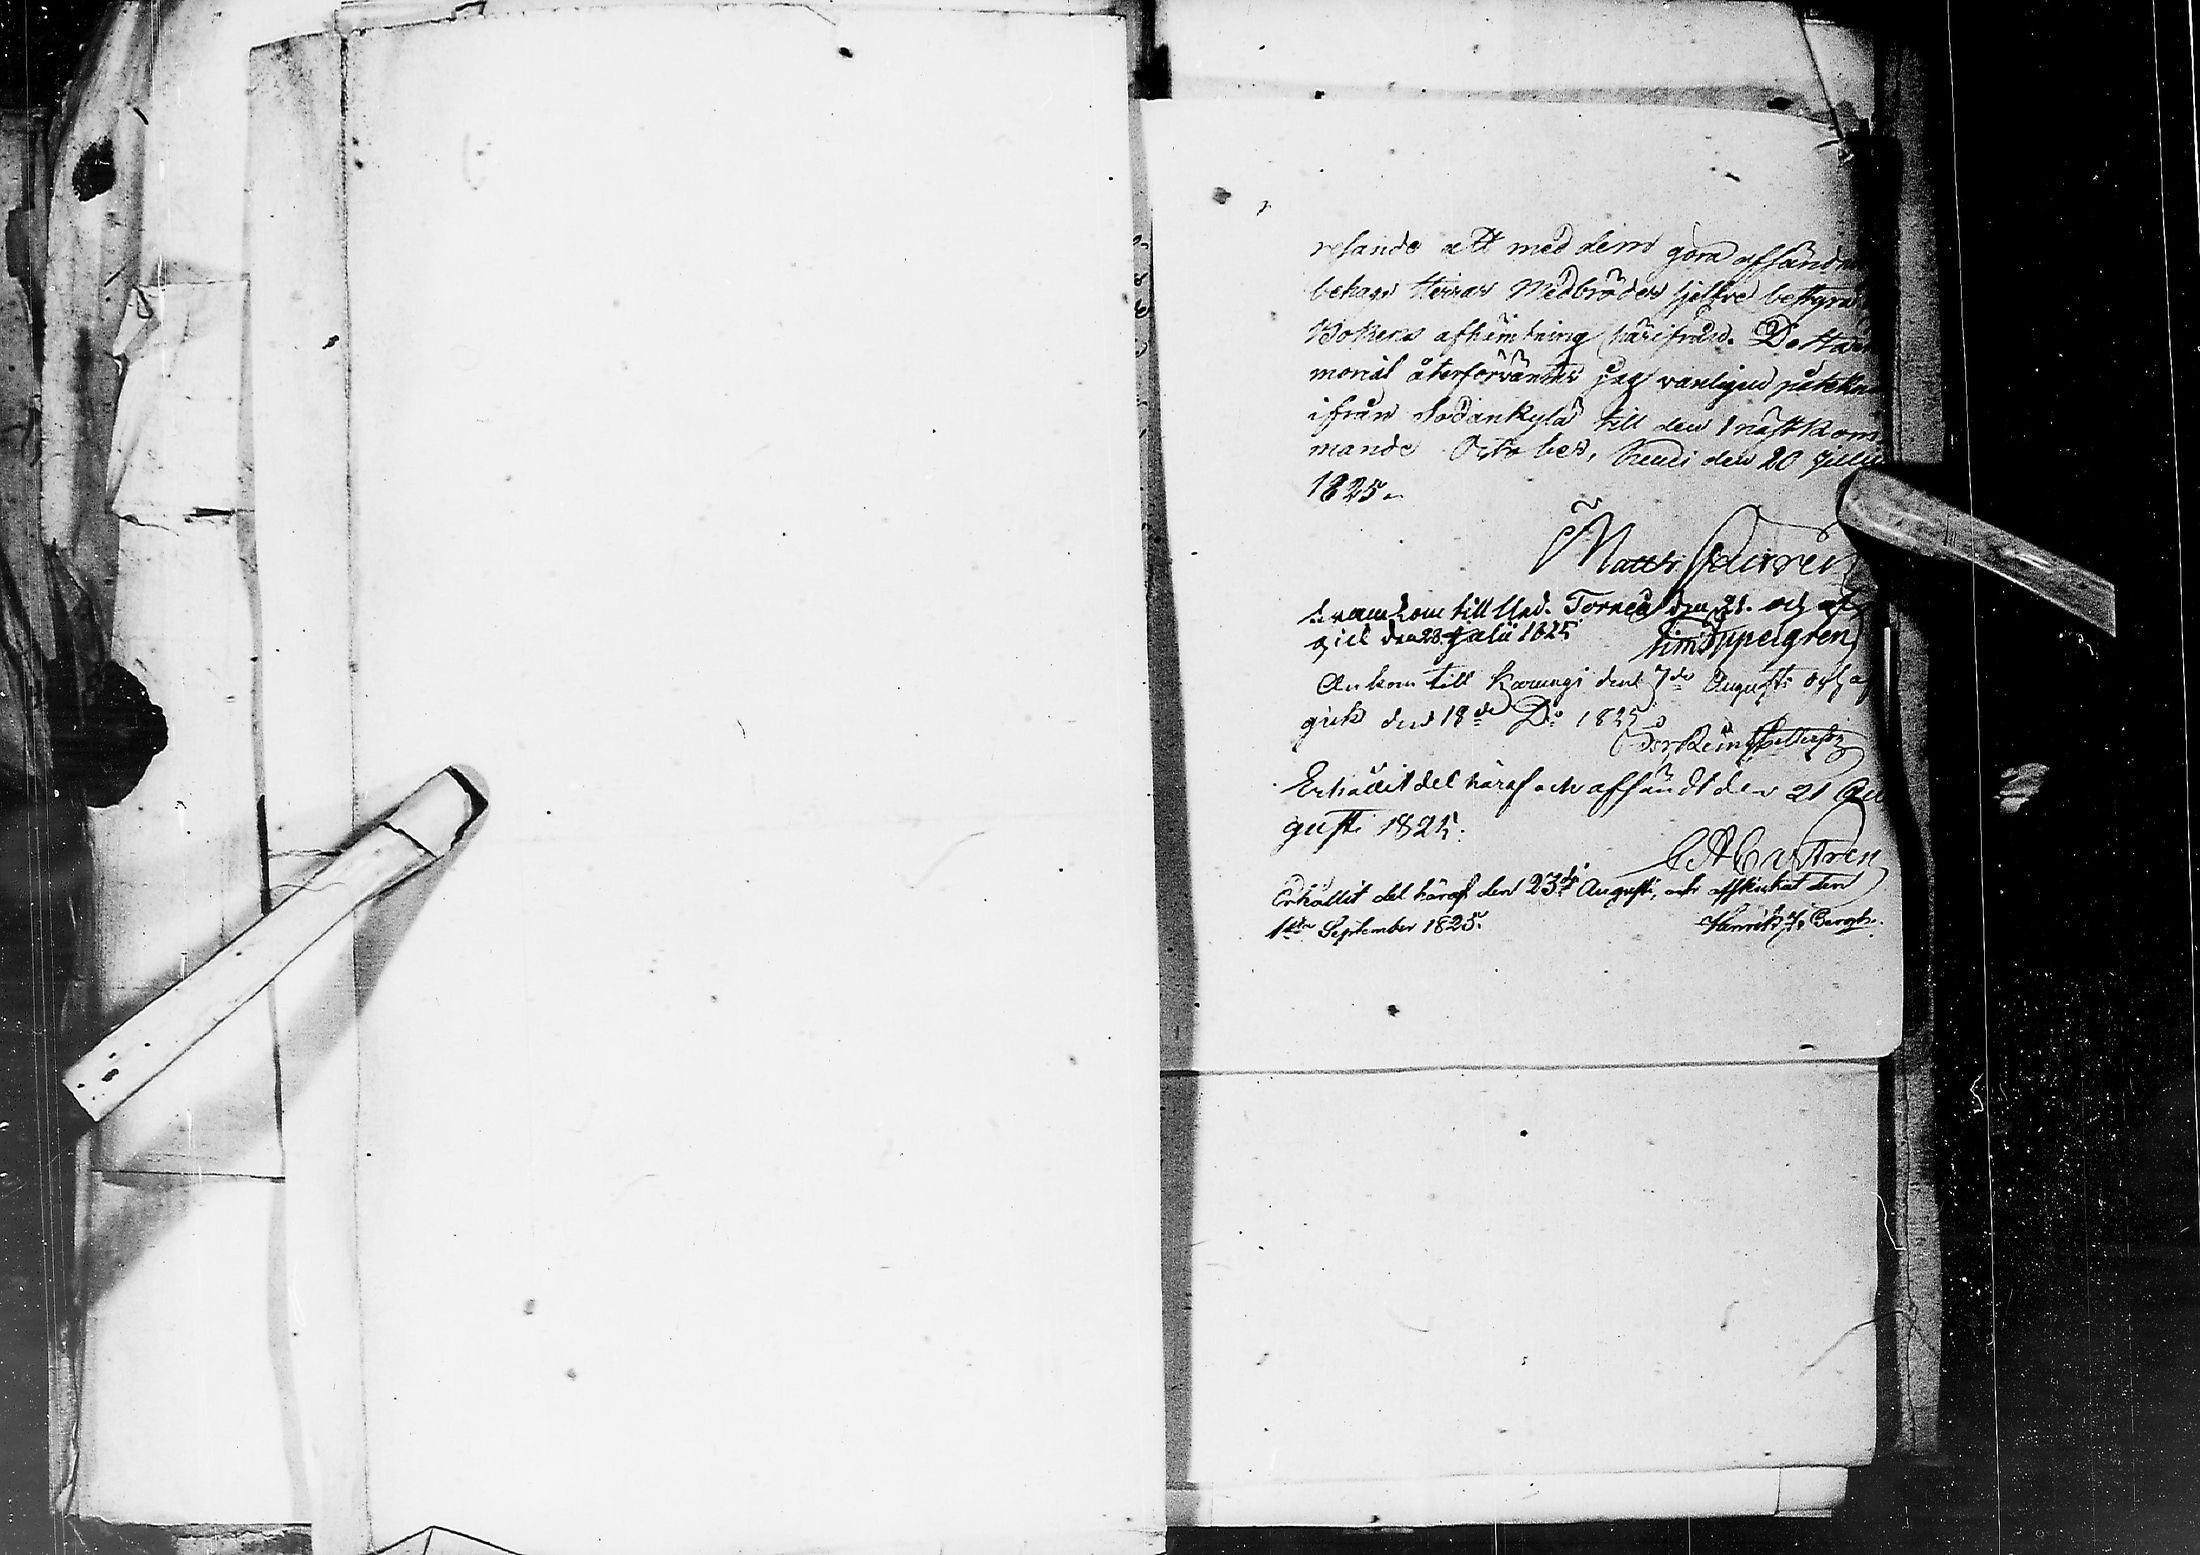 resande att med dem göra afsändn
behaga Herrar Medbröder sjelfve bestyra
Bokens afhemtning härifrån. Detta
morial återförväntar jag vanligen påtekn
ifrån Sodankylä till den 1 nästkom-
mande October, Kemi den 20 Julii
1825.
Matth:
Framkom till Ned. Torneå den 21. och af
gick den 23 Julii 1825 Sim: Appelgren
Ankom till Karungi den 7de Augusti och af
gick den 18de Do 1825
Erhållit del häraf och afsändt den 21 Au
gusti 1825.
Castrén
Erhållit del häraf den 23dje Augusti, och afskickat den
1sta September 1825. Henrik J. Bergh.